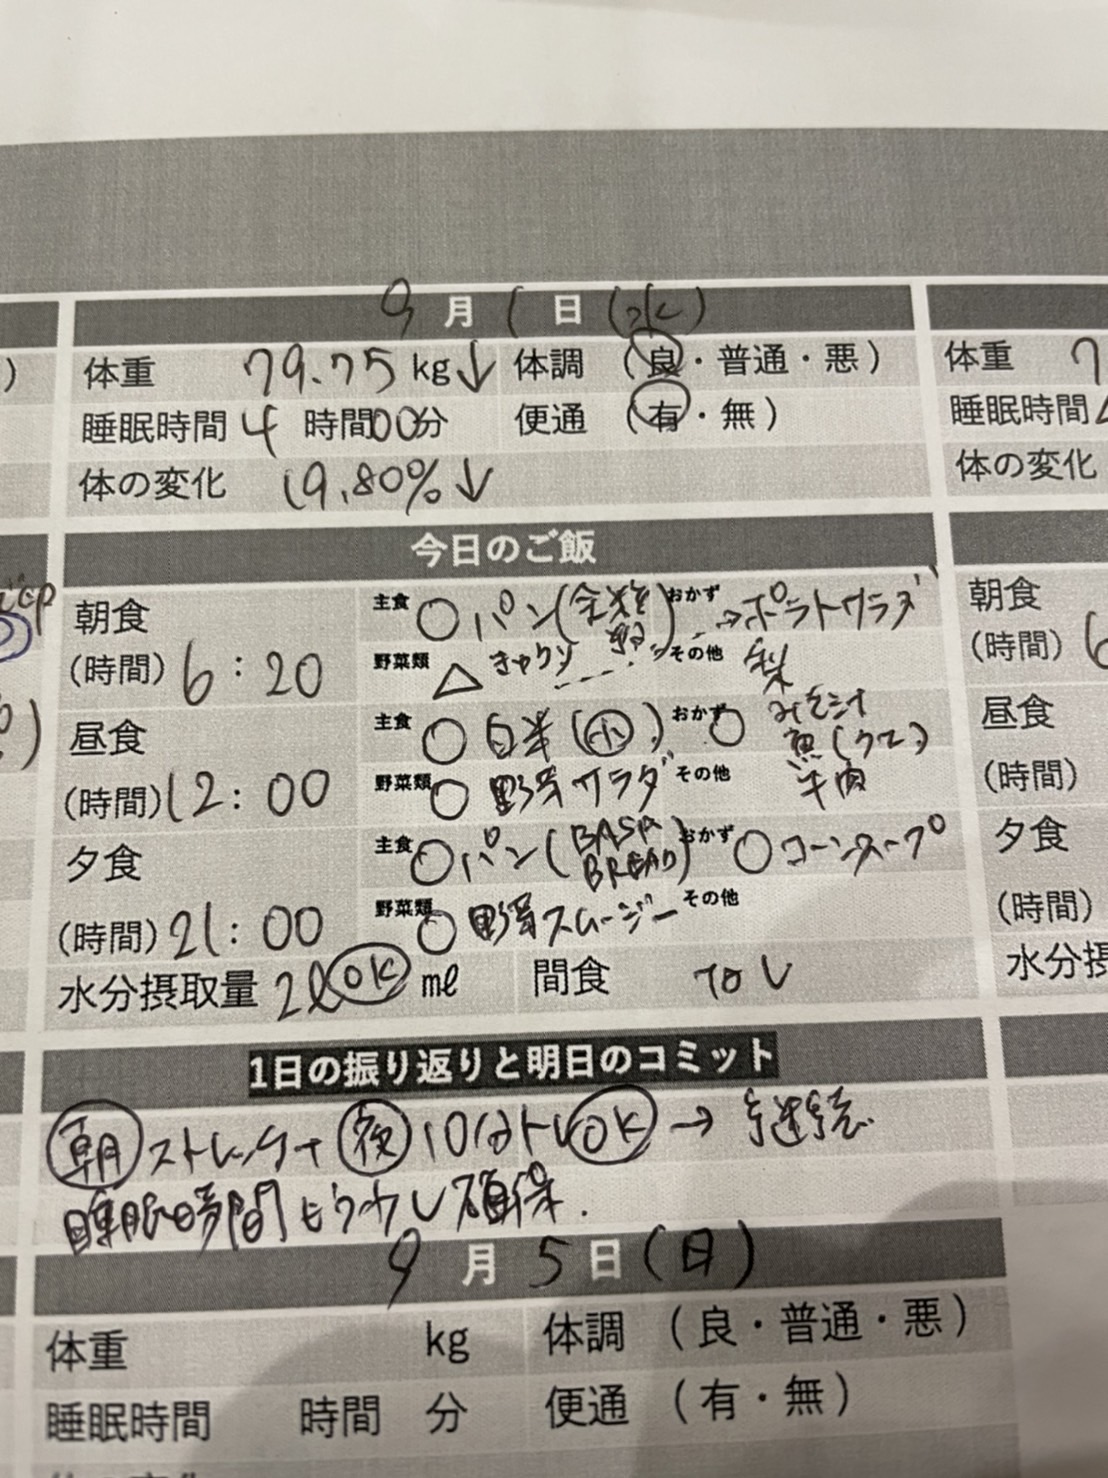 9月1日(水)
体重 79.75kg↓ 体調 (良・普通・悪)
睡眠時間 4時間00分 便通 (有・無)
体の変化 19.80%↓
今日のご飯
朝食 主食 ○パン( おかず →ポテトサラダ
(時間) 6:20 野菜類 △ きゅうり その他 梨
昼食 主食 ○白米(小) おかず ○ みそ汁
魚(クエ)
牛肉
(時間) 12:00 野菜類 ○野菜サラダ その他
夕食 主食 ○パン(BASE BREAD) おかず ○コーンスープ
(時間) 21:00 野菜類 ○野菜スムージー その他
水分摂取量 2ℓ OK ㎖ 間食 なし
1日の振り返りと明日のコミット
朝 ストレッチ+夜 10分トレOK→継続
睡眠時間もう少し確保.
9月5日(日)
体重 kg 体調 (良・普通・悪)
睡眠時間 時間 分 便通 (有・無)
体重 7
睡眠時間
体の変化
朝食
(時間) 6
昼食
(時間)
夕食
(時間)
水分摂